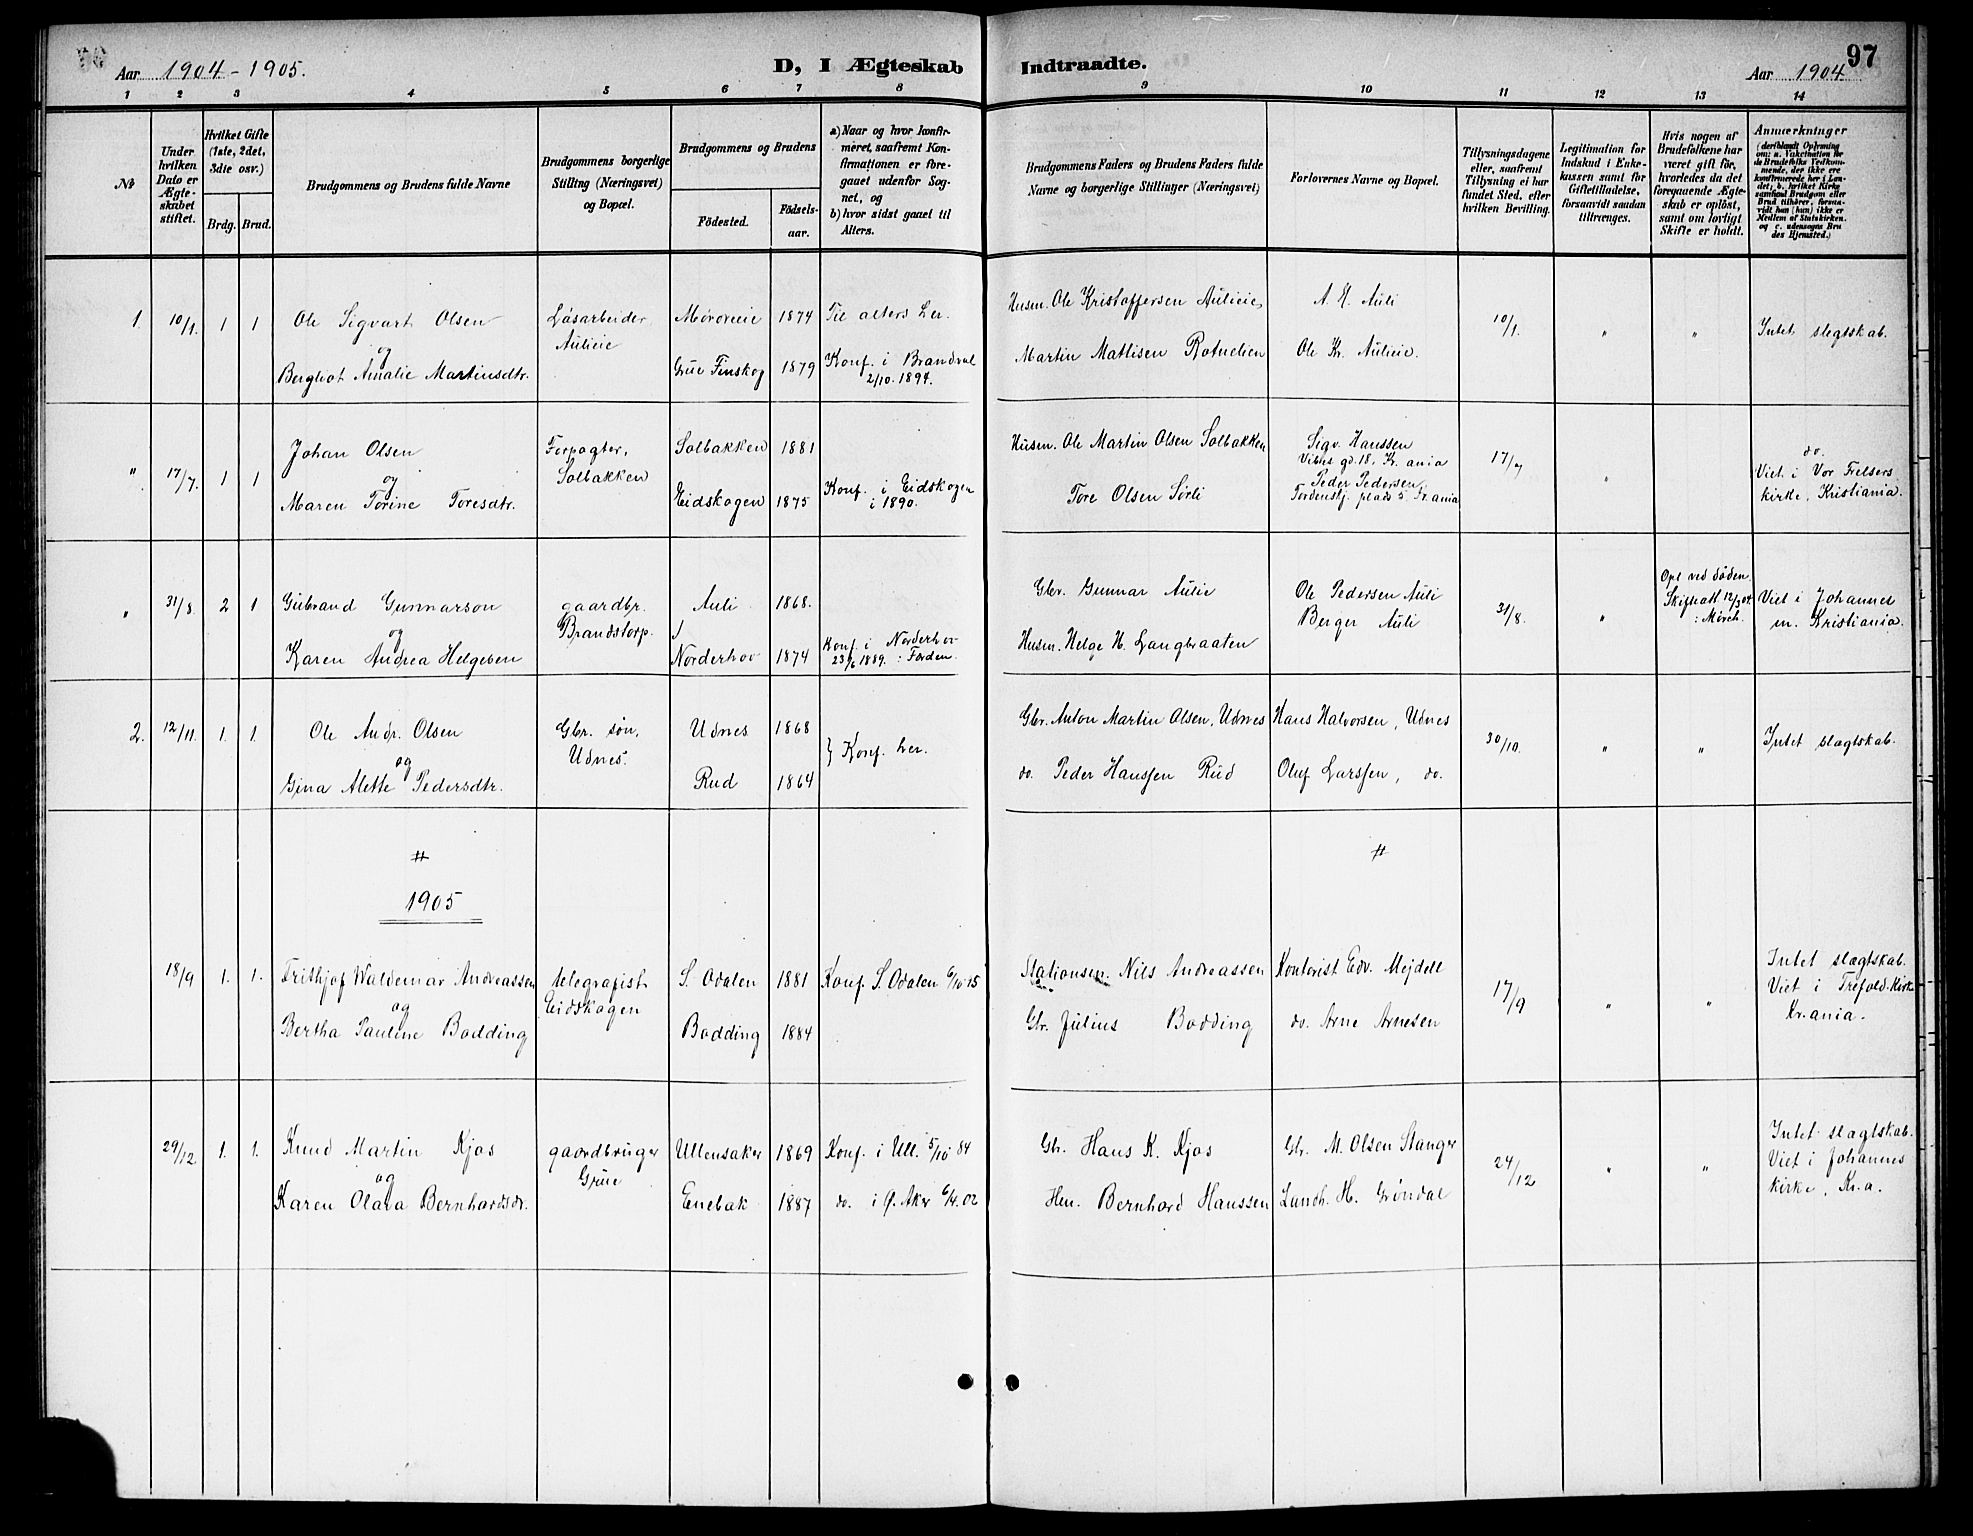 97
Aar 1904 - 1905.
D, I Ægteskab Indtraadte.
Aar 1904
1 2 3 4 5 6 7 8 9 10 11 12 13 14
No
Under
hvilken
Dato er
Ægte-
skabet
stiftet.
Hvilket Gifte
(1ste, 2det,
3die osv.)
Brdg. Brud.
Brudgommens og Brudens fulde Navne
Brudgommens borgerlige
Stilling (Næringsvei)
og Bopæl.
Brudgommens og Brudens
Födested.
Födsels-
aar.
a) Naar og hvor konfir-
meret, saafremt Kon-
firmationen er fore-
gaaet udenfor Sog-
net, og
b) hvor sidst gaaet til
Alters.
Brudgommens Faders og Brudens Faders fulde
Navne og borgerlige Stillinger (Næringsvei)
Forlovernes Navne og Bopæl.
Tillysningsdagene
eller, saafremt
Tillysning ei har
fundet Sted, efter
hvilken Bevilling.
Legitimation for
Indskud i Enke-
kassen samt for
Giftetilladelse,
forsaavidt saadan
tiltrænges.
Hvis nogen af
Brudefolkene har
været gift för,
hvorledes da det
foregaaende Ægte-
skab er oplöst,
samt om lovligt
Skifte er holdt.
Anmærkninger
(deriblandt Oplysning
om: a. Vakcination for
de Brudefolks Vedkom-
mende, der ikke ere
konfirmerede her i Lan-
det; b. hvilket Kirke
samfund Brudgom eller
Brud tilhører, forsaa-
vidt han (hun) ikke er
Medlem af Statskirken.
og c. udensogns Bru
des Hjemsted.)
1. 10/1. 1 1 Ole Sigvart Olsen
og
Bergljot Amalie Martinsdtr.
Løsarbeider,
Aulieie
Moroveie 1874 Til alters her.
Grue Finskog 1879 Konf. i Brandval
2/10. 1894.
Husm. Ole Kristoffersen Aulieie,
Martin Mattisen Rotnelien
A. H. Auli
Ole Kr. Aulieie.
10/1. " " Intet slegtskab.
". 17/7. 1 1 Johan Olsen
og
Maren Torine Toresdtr.
Forpagter,
Solbakken
Solbakken 1881
Eidskogen 1875 Konf. i Eidskogen
i 1890.
Husm. Ole Martin Olsen Solbakken
Tore Olsen Sörli
Sigv. Hanssen
Vibes gd. 18, Kr.ania
Peder Pedersen
Tordenskj. plads 5 Kr.ania
17/7 " do.
Viet i Vor Frelsers
kirke, Kristiania.
" 31/8. 2 1 Gulbrand Gunnarson
og
Karen Andrea Helgesen
gaardbr.
Brandstorp.
Auli 1868.
Norderhov 1874 Konf. i Norderhov
23/6 1889.
Gbr. Gunnar Aulie
Husm. Helge H. Langbraaten
Ole Pedersen Auli
Berger Auli
31/8. " Opl ved døden.
Skifteatt. 12/3 04
: Mörch.
Viet i Johannes
m. Kristiania.
2. 12/11. 1. 1. Ole Andr. Olsen
og
Gina Alette Pedersdtr.
Gbr. søn,
Udnes.
Udnes 1868
Rud 1864
} Konf. her.
Gbr. Anton Martin Olsen, Udnes
do. Peder Hanssen Rud
Hans Halvorsen, Udnes
Oluf Larssen, do.
30/10. " " Intet slægtskab.
#
#
1905
18/9 1. 1. Frithjof Waldemar Andreassen
og
Bertha Pauline Bodding
telegrafist
Eidskogen
S. Odalen 1881 Konf. S. Odalen 6/10 95
Bodding 1884
Stationsm. Nils Andreassen
Gbr. Julius Bodding
Kontorist Edv. Mejdell
do. Arne Arnesen
17/9 " " Intet slægtskab.
Viet i Trefold.kirk
Kr.ania.
29/12. 1. 1. Knud Martin Kjos
og
Karen Olava Bernhardsdr.
gaardbruger
Grue
Ullensaker 1869 Konf. i Ull. 5/10 84
Enebak 1887 do. i Ø. Aker 6/4. 02
Gbr. Hans K. Kjos
Bernhard Hanssen
Gbr. M. Olsen Stanger
H. Gröndal
24/12 " " Intet slægtskab.
Viet i Johannes
kirke, Kr.a.